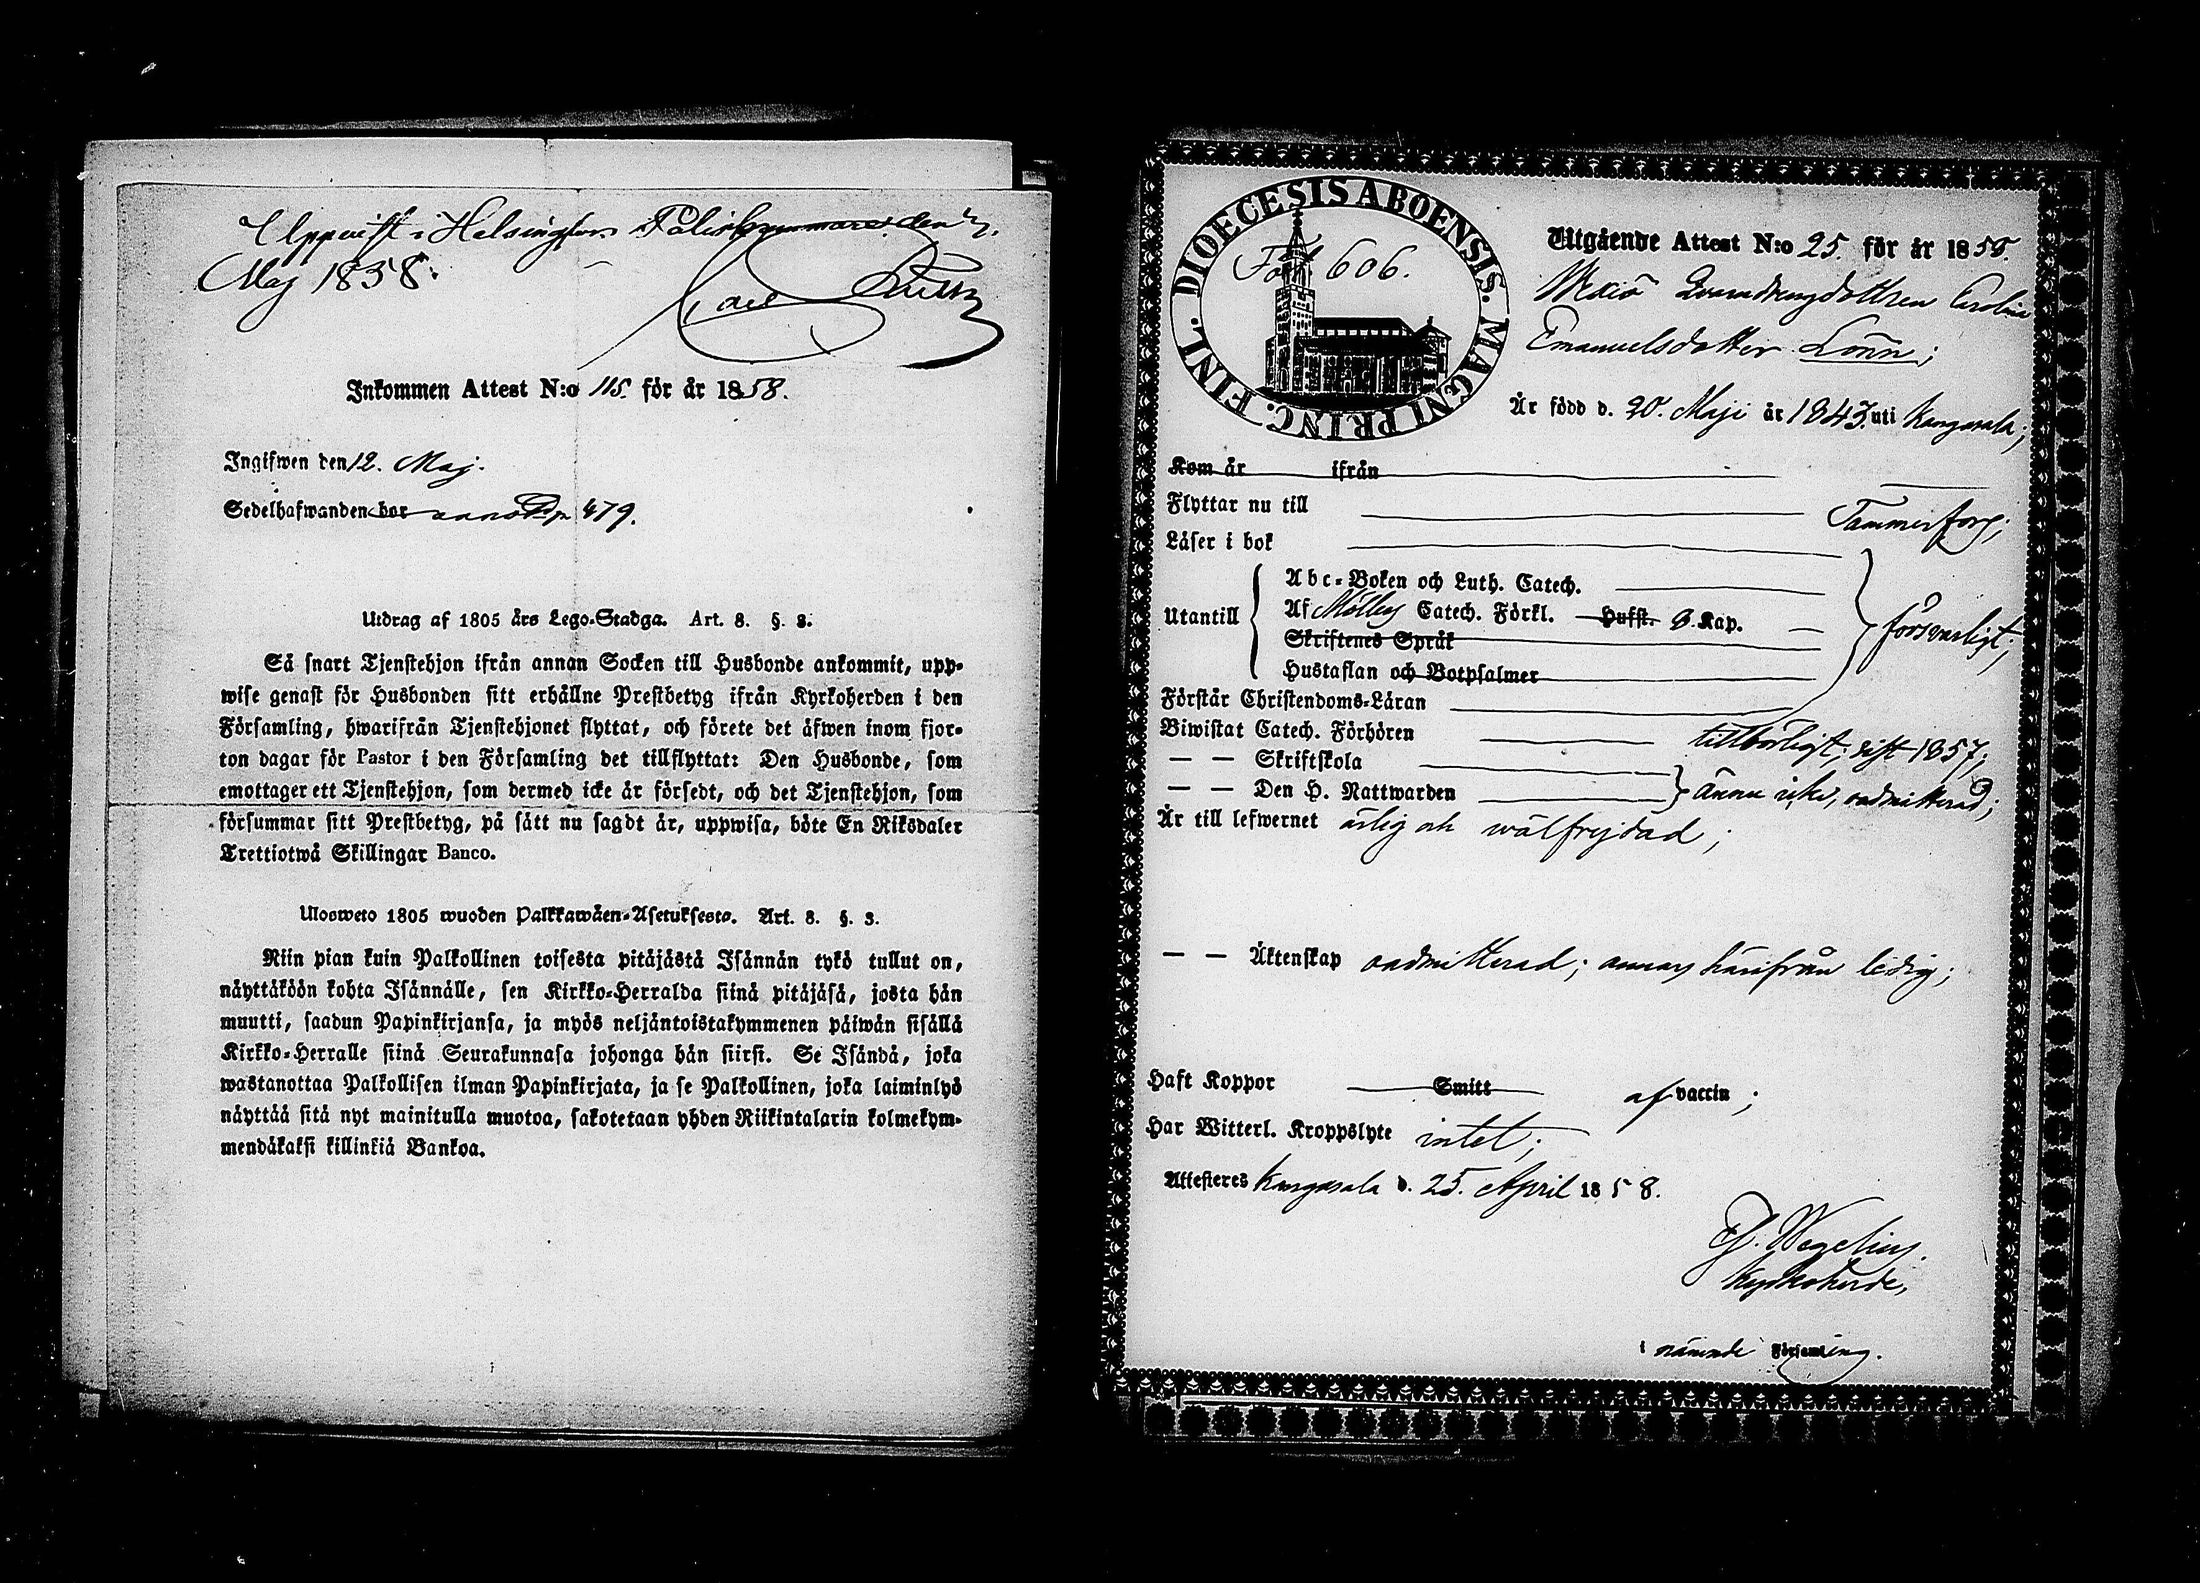 Uppvist i Helsingfors Poliskammare den 7.
Maj 1858.
Carl
Inkommen Attest N:o 115. för år 1858.
Ingifwen den 12. Maj.
Sedelhafwanden bor 479.
Utdrag af 1805 års Lego-Stadga. Art. 8. §. 3.
Så snart Tjenstehjon ifrån annan Socken till Husbonde ankommit, upp-
wise genast för Husbonden sitt erhållne Prestbetyg ifrån Kyrkoherden i den
Församling, hwarifrån Tjenstehjonet flyttat, och förete det äfwen inom fjor-
ton dagar för Pastor i den Församling det tillflyttat: Den Husbonde, som
emottager ett Tjenstehjon, som dermed icke är försedt, och det Tjenstehjon, som
försummar sitt Prestbetyg, på sätt nu sagdt är, uppwisa, böte En Riksdaler
Trettiotwå Skillingar Banco.
Ulosweto 1805 wuoden Palkkawäen-Asetuksesta. Art. 8. §. 3.
Niin pian kuin Palkollinen toisesta pitäjästä Isännän tykö tullut on,
näyttäköön kohta Isännälle, sen Kirkko-Herralda siinä pitäjäsä, josta hän
muutti, saadun Papinkirjansa, ja myös neljäntoistakymmenen päiwän sisällä
Kirkko-Herralle siinä Seurakunnasa johonga hän siirsi. Se Isändä, joka
wastanottaa Palkollisen ilman Papinkirjata, ja se Palkollinen, joka laiminlyö
näyttää sitä nyt mainitulla muotoa, sakotetaan yhden Riikintalarin kolmekym-
mendäkaksi killinkiä Bankoa.
DIOECESIS ABOENSIS. MAGNI PRINC. FINL.
Fol. 606.
Utgående Attest N:o 25. för år 1858.
Carolina
Emanuelsdotter Lönn;
Är född d. 20. Maji år 1843. uti Kangasala;
Kom år ifrån
Flyttar nu till Tammerfors;
Läser i bok
Utantill
Abc-Boken och Luth. Catech.
Af Möllers Catech. Förkl. Hufst. 8. Kap.
Skriftenes Språk
Hustaflan och Botpsalmer
försvarligt;
Förstår Christendoms-Läran
Biwistat Catech. Förhören tillbörligt, sist 1857;
— — Skriftskola
— — Den H. Nattwarden ännu icke, oadmitterad;
Är till lefwernet ärlig och wälfrejdad;
— — Äktenskap oadmitterad; härifrån ledig;
Haft Koppor Smitt af vaccin;
Har Witterl. Kroppslyte intet;
Attesteres Kangasala d. 25. April 1858.
Wegelius.
Kyrkoherde,
i nämnde Församling.